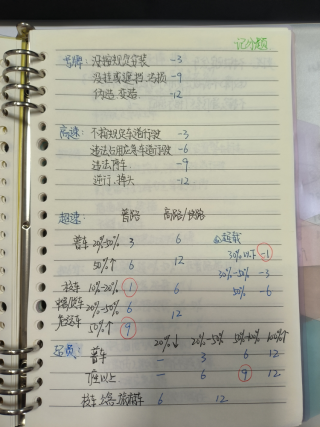 记分题
号牌: 没按规定安装 -3
没挂 故意遮挡、污损 -9
伪造、变造 -12
高速: 不按规定车道行驶 -3
违法占用应急车道行驶 -6
违法停车 -9
逆行、掉头 -12
超速: 普路 高路/快路
普车 20%-50% 3 6
50%↑ 6 12
超载
30%以下 -1
30%-50% -3
50% -6
校车 10%-20% 1 6
20%-50% 6 12
50%↑ 9
超员: 20%↓ 20%-50% 50%-100% 100%↑
普车 — 3 6 12
7座以上 — 6 9 12
校车 公客 旅客车 6 12